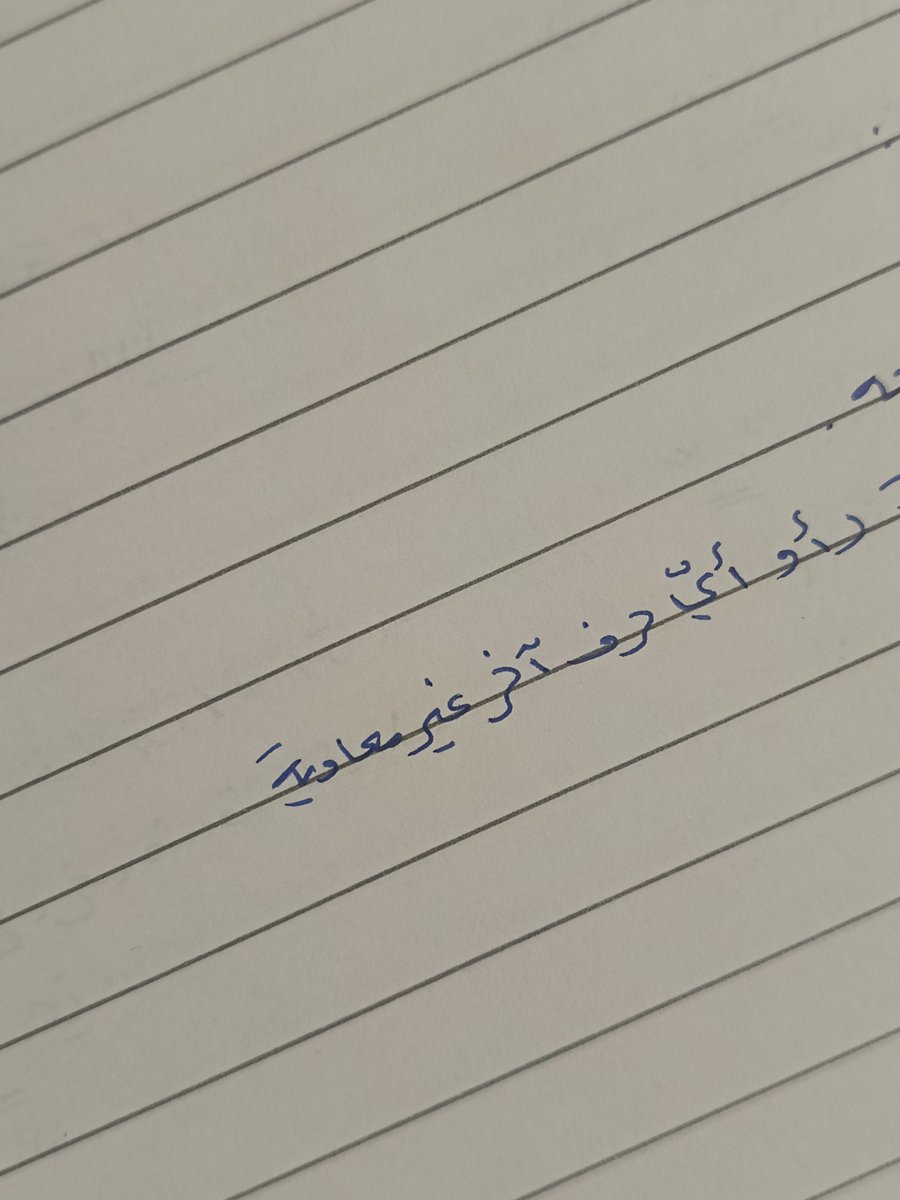 أو أيّ حرف آخر غير معاوية